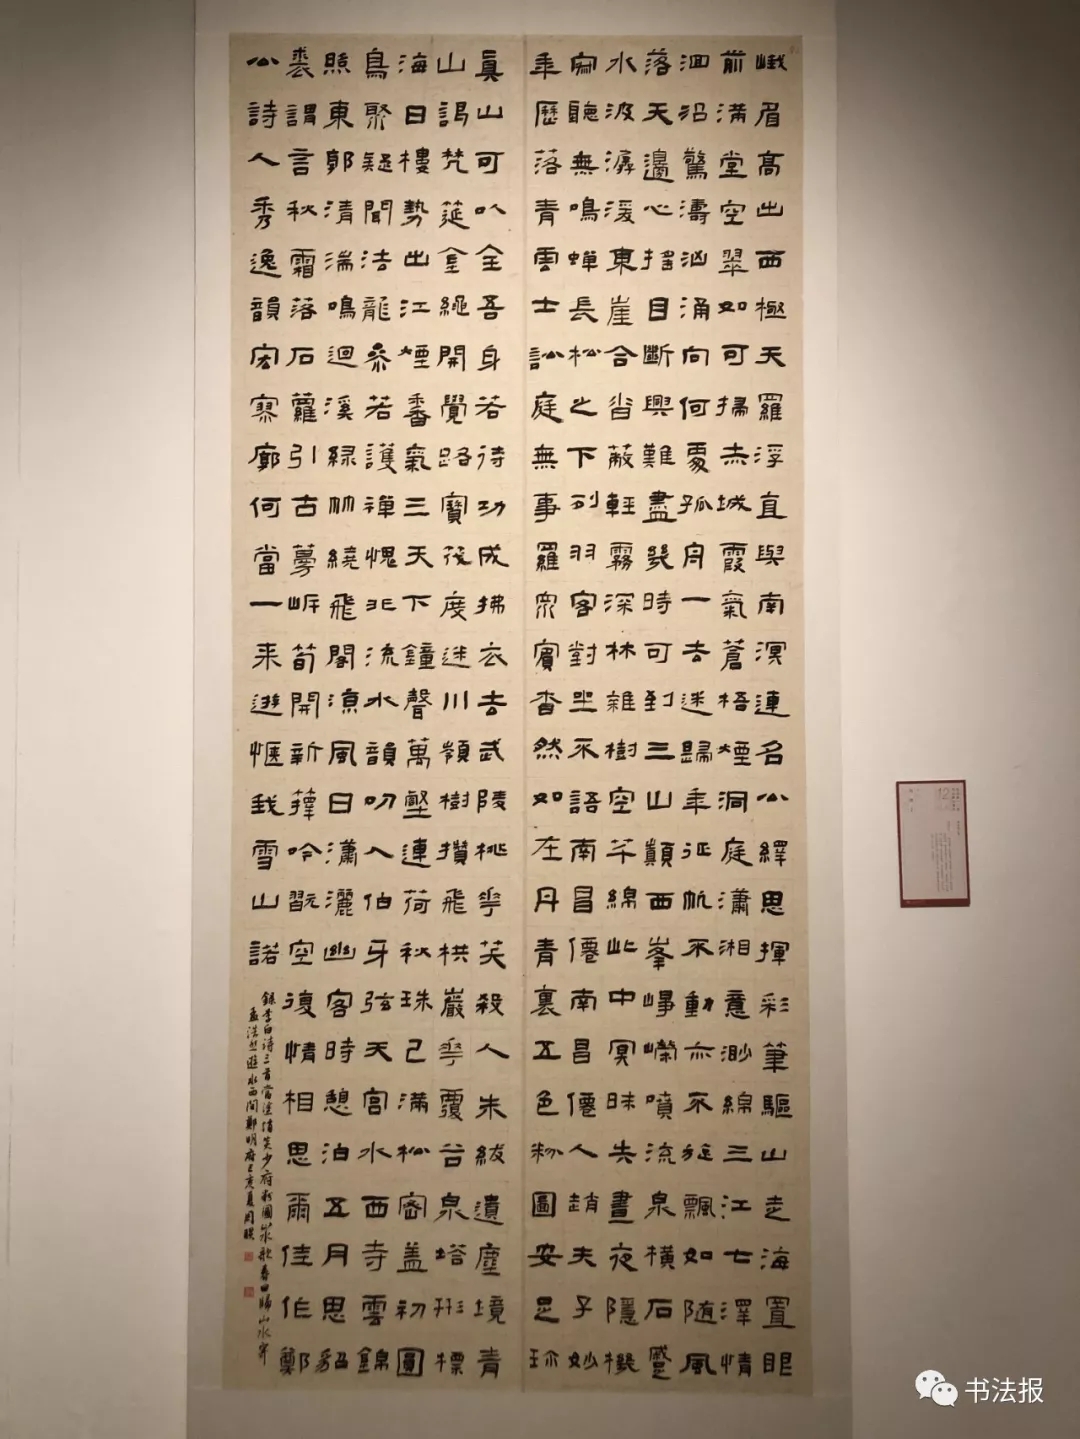 峨眉高出西極天羅浮直與南溟連名公繹思揮彩筆驅山走海置眼
前滿堂空翠如可掃赤城霞氣蒼梧煙洞庭瀟湘意渺綿三江七澤情
洄沿驚濤洶涌向何處孤舟一去迷歸年征帆不動亦不旋飄如隨風
落天邊心搖目斷興難盡幾時可到三山巔西峯崢嶸噴流泉橫石蹙
水波潺湲東崖合沓蔽輕霧深林雜樹空芊綿此中冥昧失晝夜隱機
寂聽無鳴蟬長松之下列羽客對坐不語南昌僊南昌僊人趙夫子妙
年歷落青雲士訟庭無事羅衆賓杳然如在丹青裏五色粉圖安足珍
真山可以全吾身若待功成拂衣去武陵桃華笑殺人朱紱遺塵境青
山謁梵筵金繩開覺路寶筏度迷川嶺樹攢飛栱巖華覆谷泉塔形標
海日樓勢出江煙香氣三天下鐘聲萬壑連荷秋珠已滿松密蓋初圓
鳥聚疑聞法龍參若護禪愧非流水韻叨入伯牙弦天宮水西寺雲錦
照東郭清湍鳴迴溪綠竹繞飛閣涼風日瀟灑幽客時憩泊五月思貂
裘謂言秋霜落石蘿引古蔓岸筍開新籜吟翫空復情相思爾佳作鄭
公詩人秀逸韻宏寥廓何當一來遊愜我雪山諾
錄李白詩三首當塗趙炎少府粉圖山水歌春日歸山水寄
孟浩然遊水西簡鄭明府己亥夏周
12
书法报